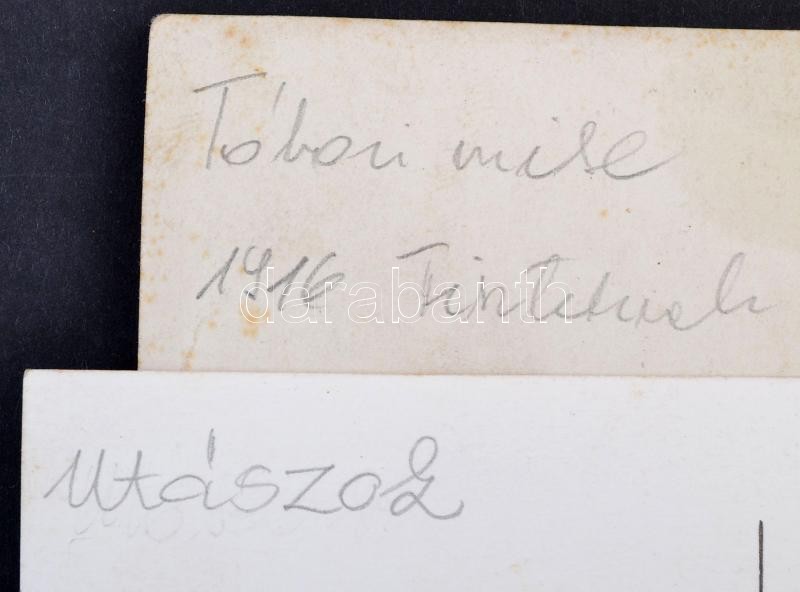 Tábori mise
1916 Tiszteknek
darabanth
utászok